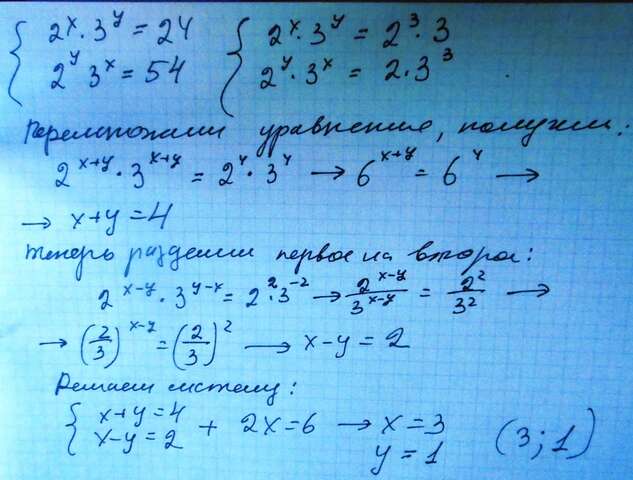 { 2^x · 3^y = 24 { 2^x · 3^y = 2^3 · 3
2^y 3^x = 54 2^y · 3^x = 2 · 3^3
Перемножаем уравнение, получим:
2^(x+y) · 3^(x+y) = 2^4 · 3^4 → 6^(x+y) = 6^4 →
→ x+y=4
теперь разделим первое на второе:
2^(x-y) · 3^(y-x) = 2^2 · 3^(-2) → 2^(x-y)/3^(x-y) = 2^2/3^2 →
→ (2/3)^(x-y) = (2/3)^2 → x-y=2
Решаем систему:
{ x+y=4
x-y=2 + 2x=6 → x=3
y=1 (3;1)